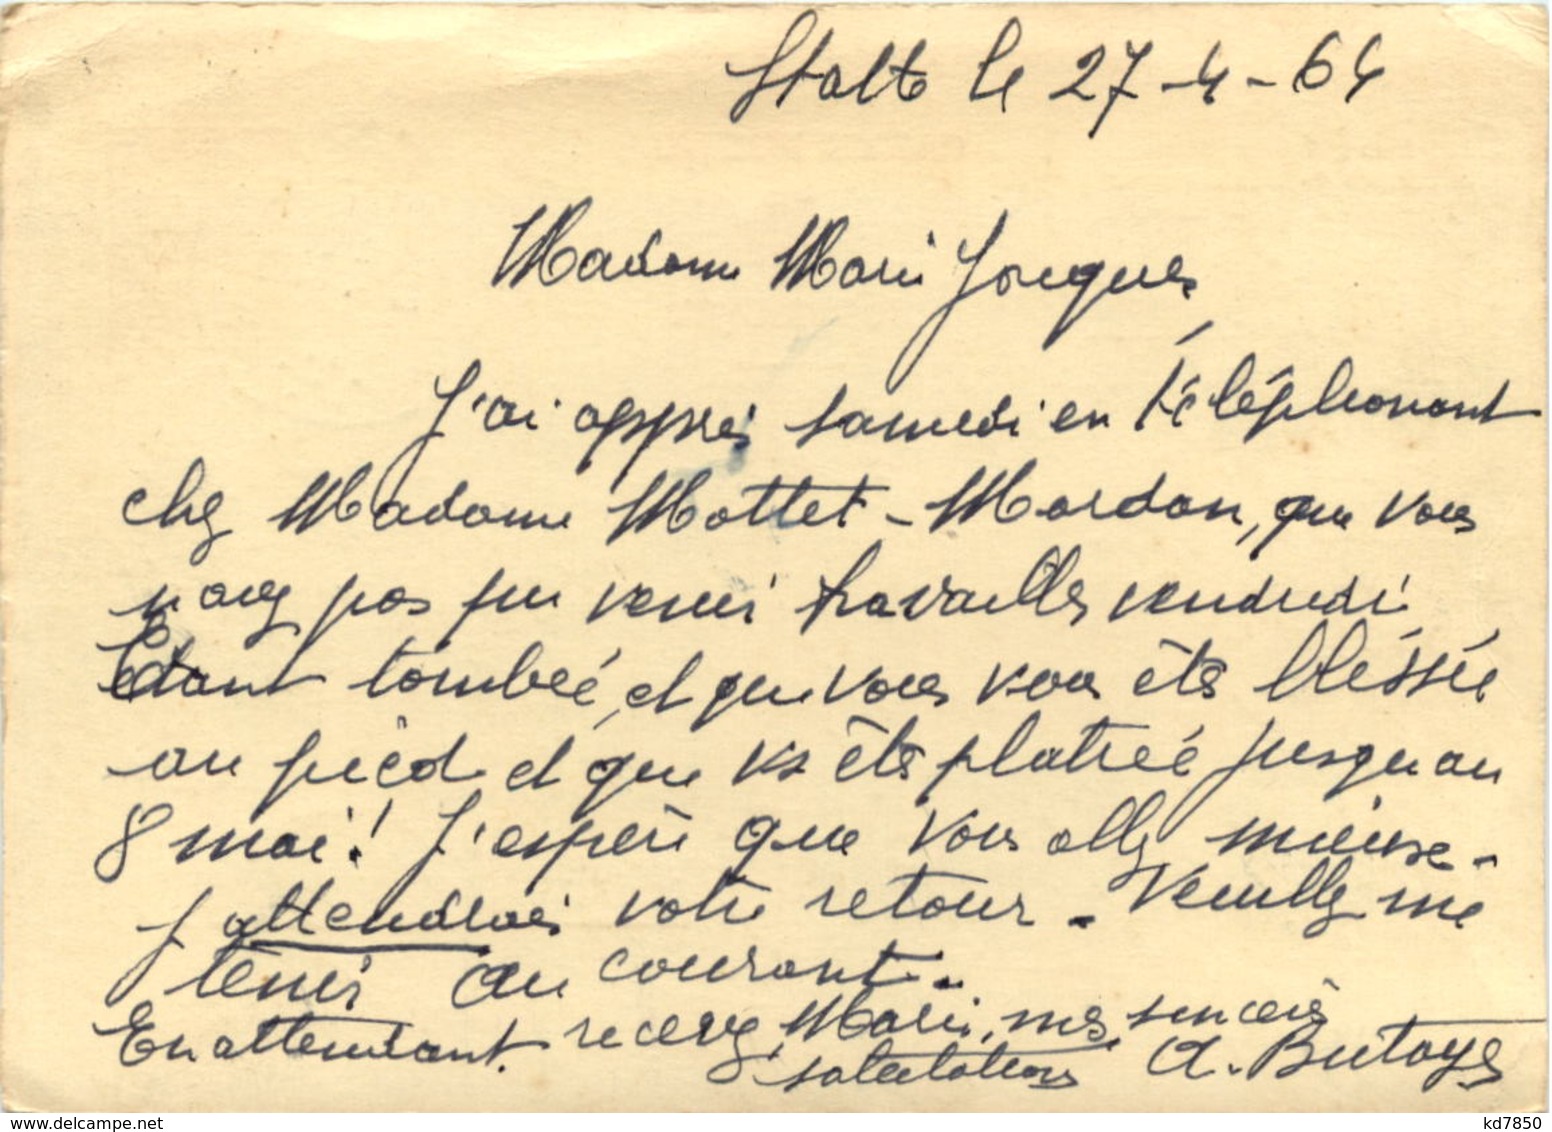 Stalle le 27-4-64
Madame Marie Jacques
J'ai appris samedi en téléphonant
chez Madame Mottet-Mardan, que vous
n'avez pas pu venir travailler vendredi
Étant tombée, et que vous vous êtes bléssée
au pied et que vs êtes platrée jusqu'au
8 mai! J'espère que vous allez mieux -
J'attendrai votre retour. Veuillez me
tenir au courant.
En attendant recevez, Marie, mes sincères
salutations A. Butaye
www.delcampe.net kd7850